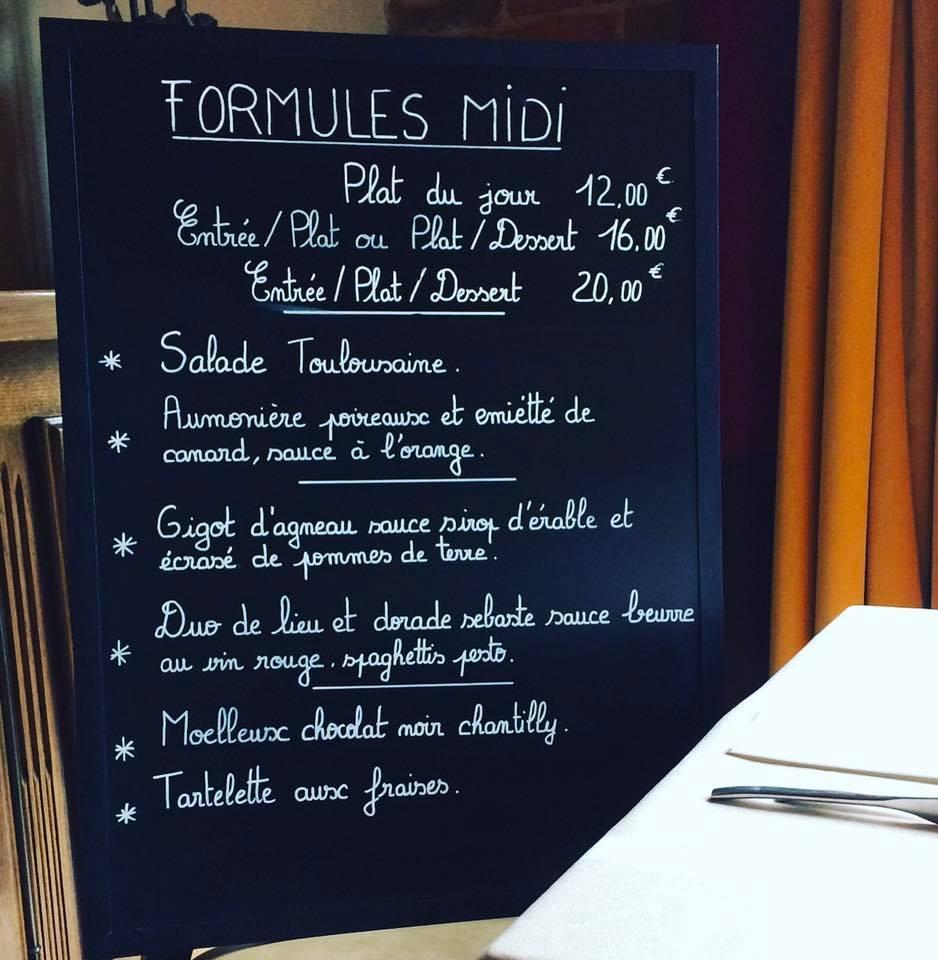 FORMULES MiDi
Plat du jour 12,00€
Entrée/Plat ou Plat/Dessert 16,00€
Entrée/Plat/Dessert 20,00€
* Salade Toulousaine.
Aumonière poireaux et emiétté de
* canard, sauce à l'orange.
Gigot d'agneau sauce sirop d'érable et
* écrasé de pommes de terre.
Duo de lieu et dorade sebaste sauce beurre
* au vin rouge. spaghettis pesto.
* Moelleux chocolat noir chantilly.
* Tartelette aux fraises.